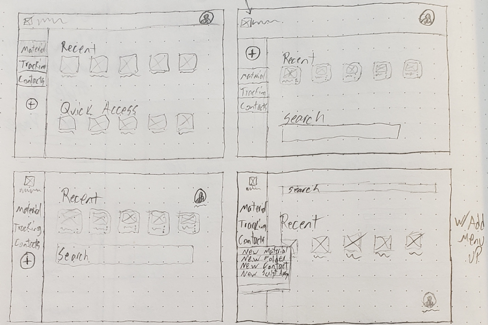 Recent
Material
Tracking
Contacts
Quick Access
Recent
Material
Tracking
Contacts
Search
Recent
Material
Tracking
Contacts
Search
Search
Material
Tracking
Contacts
Recent
New Material
New Folder
New Contact
W/Add
Menu
UP